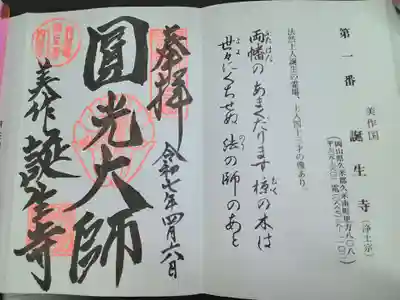 第一番
美作国
誕生寺
(浄土宗)
法然上人誕生の霊場、上人四十三才の像あり。
両幡のあまくだります椋の木は
ふたはた
むく
世々にくちせぬ法の師のあと
よよ
のり
奉拝
令和七年四月六日
圓光大師
美作誕生寺